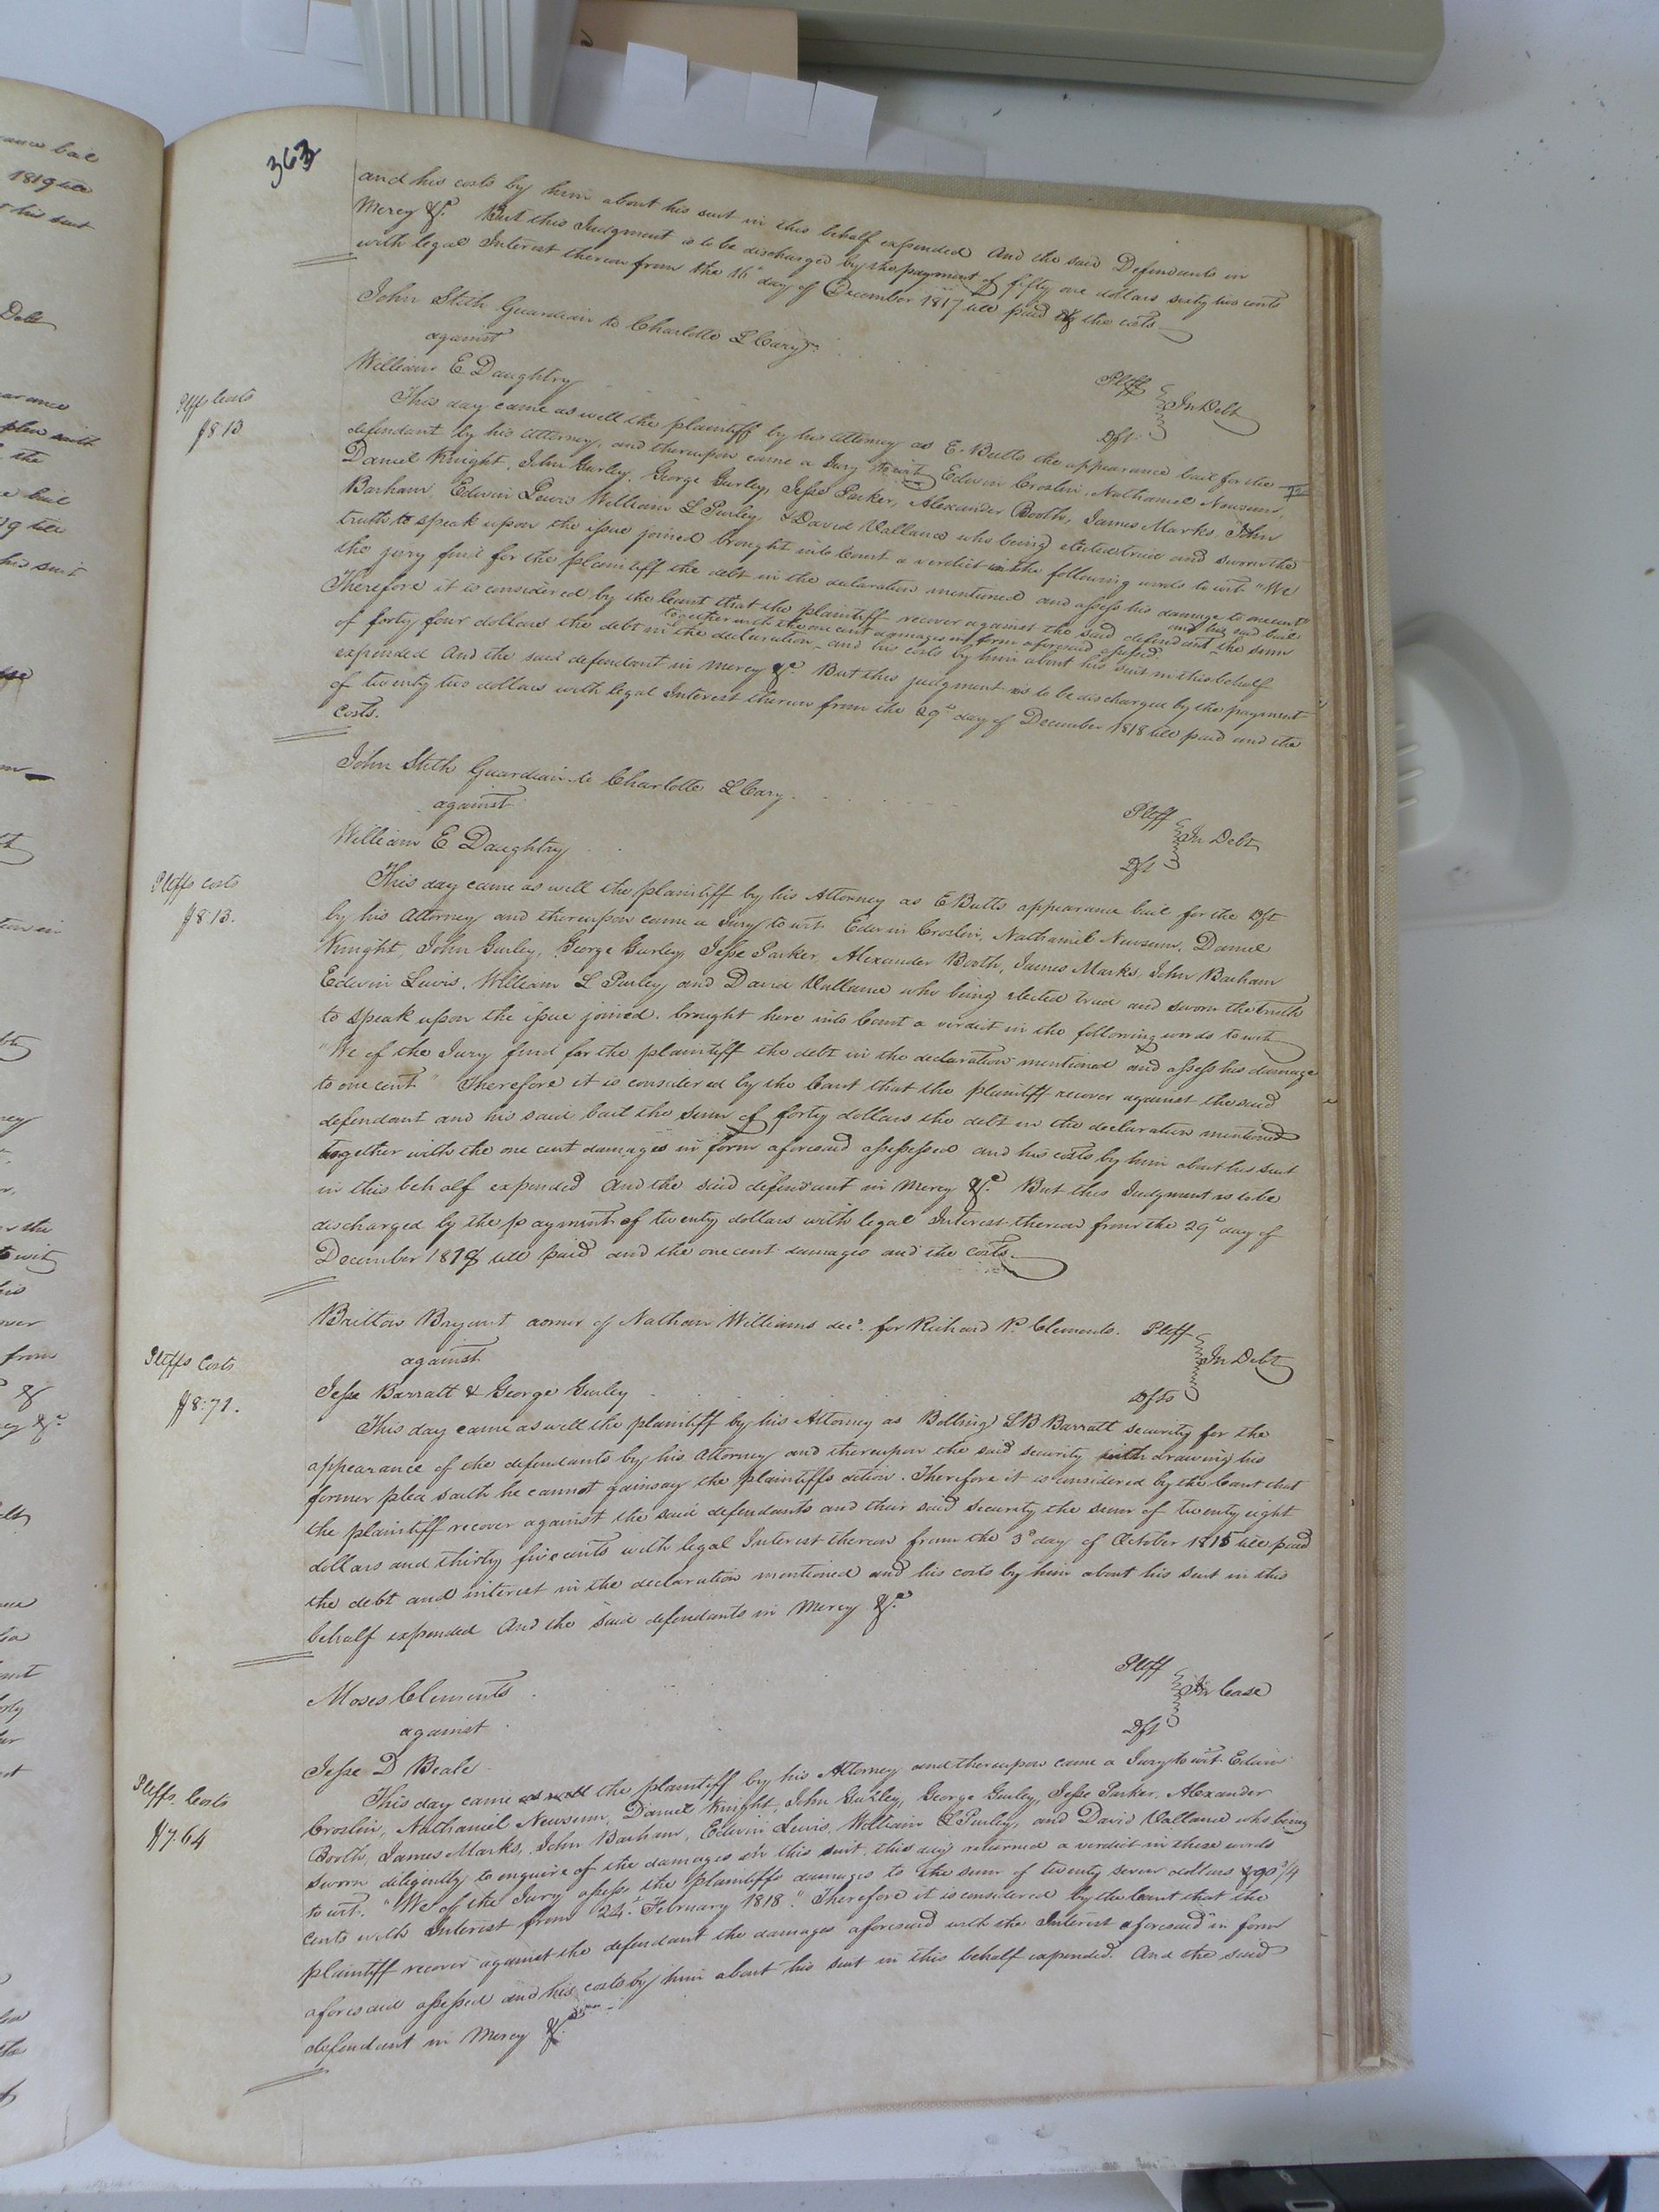 363
and his costs by him about his suit in this behalf expended And the said Defendants in
Mercy &c. But this Judgment is to be discharged by the payment of fifty one dollars sixty two cents
with legal Interest thereon from the 16th day of December 1817 till paid & the costs
John Stith Guardian to Charlotte L Cary
Pltff
against
In Debt
William E Daughtry
Dft
Pltffs Costs
$8.13
This day came as well the plaintiff by his Attorney as E. Butts the appearance bail for the
defendant by his Attorney, and thereupon came a Jury to wit Edwin Croslin, Nathaniel Newsum,
Daniel Knight, John Gurley, George Gurley, Jesse Parker, Alexander Booth, James Marks, John
Barham, Edwin Lewis William L Purley, & David Vallance who being elected tried and sworn the
truth to speak upon the issue joined brought into Court a verdict in the following words to wit "We
the jury find for the plaintiff the debt in the declaration mentioned and assess his damage to one cent"
Therefore it is considered by the Court that the plaintiff recover against the said defendant and his said bail the sum
of forty four dollars the debt in the declaration together with the one cent damages in form aforesaid assessed and his costs by him about his suit in this behalf
expended And the said defendant in mercy &c. But this judgment is to be discharged by the payment
of twenty two dollars with legal Interest thereon from the 29th day of December 1818 till paid and the
costs.
John Stith Guardian to Charlotte L Cary
Pltff
against
In Debt
William E Daughtry
Dft
Pltffs costs
$8.13.
This day came as well the plaintiff by his Attorney as E Butts appearance bail for the Dft
by his Attorney and thereupon came a Jury to wit Edwin Croslin, Nathaniel Newsum, Daniel
Knight, John Gurley, George Gurley, Jesse Parker, Alexander Booth, James Marks, John Barham
Edwin Lewis, William L Purley and David Vallance who being elected tried and sworn the truth
to speak upon the issue joined. brought here into Court a verdict in the following words to wit
"We of the Jury find for the plaintiff the debt in the declaration mentioned and assess his damage
to one cent" Therefore it is considered by the Court that the plaintiff recover against the said
defendant and his said bail the sum of forty dollars the debt in the declaration mentioned
together with the one cent damages in form aforesaid assessed and his costs by him about his suit
in this behalf expended And the said defendant in Mercy &c. But this Judgment is to be
discharged by the payment of twenty dollars with legal Interest thereon from the 29th day of
December 1818 till paid and the one cent damages and the costs.
Britton Bryant admr of Nathan Williams decd. for Richard P. Clements. Pltff
against
In Debt
Jesse Barratt & George Gurley
Dfts
Pltffs Costs
$8.71.
This day came as well the plaintiff by his Attorney as Bolling L B Barratt security for the
appearance of the defendants by his Attorney and thereupon the said security withdrawing his
former plea saith he cannot gainsay the plaintiffs action. Therefore it is considered by the Court that
the plaintiff recover against the said defendants and their said security the sum of twenty eight
dollars and thirty five cents with legal Interest thereon from the 3d day of October 1815 till paid
the debt and interest in the declaration mentioned and his costs by him about his suit in this
behalf expended And the said defendants in Mercy &c.
Moses Clements
Pltff
against
In Case
Jesse D Beale
Dft
Pltffs. Costs
$7.64
This day came as well the plaintiff by his Attorney and thereupon came a Jury to wit Edwin
Croslin, Nathaniel Newsum, Daniel Knight, John Gurley, George Gurley, Jesse Parker, Alexander
Booth, James Marks, John Barham, Edwin Lewis, William L Purley, and David Vallance who being
sworn diligently to enquire of the damages in this suit this day returned a verdict in these words
to wit. "We of the Jury assess the plaintiffs damages to the sum of twenty seven dollars & 90 3/4
cents with Interest from 24th February 1818." Therefore it is considered by the Court that the
plaintiff recover against the defendant the damages aforesaid with the Interest aforesaid in form
aforesaid assessed and his costs by him about his suit in this behalf expended. And the said
defendant in Mercy &c.